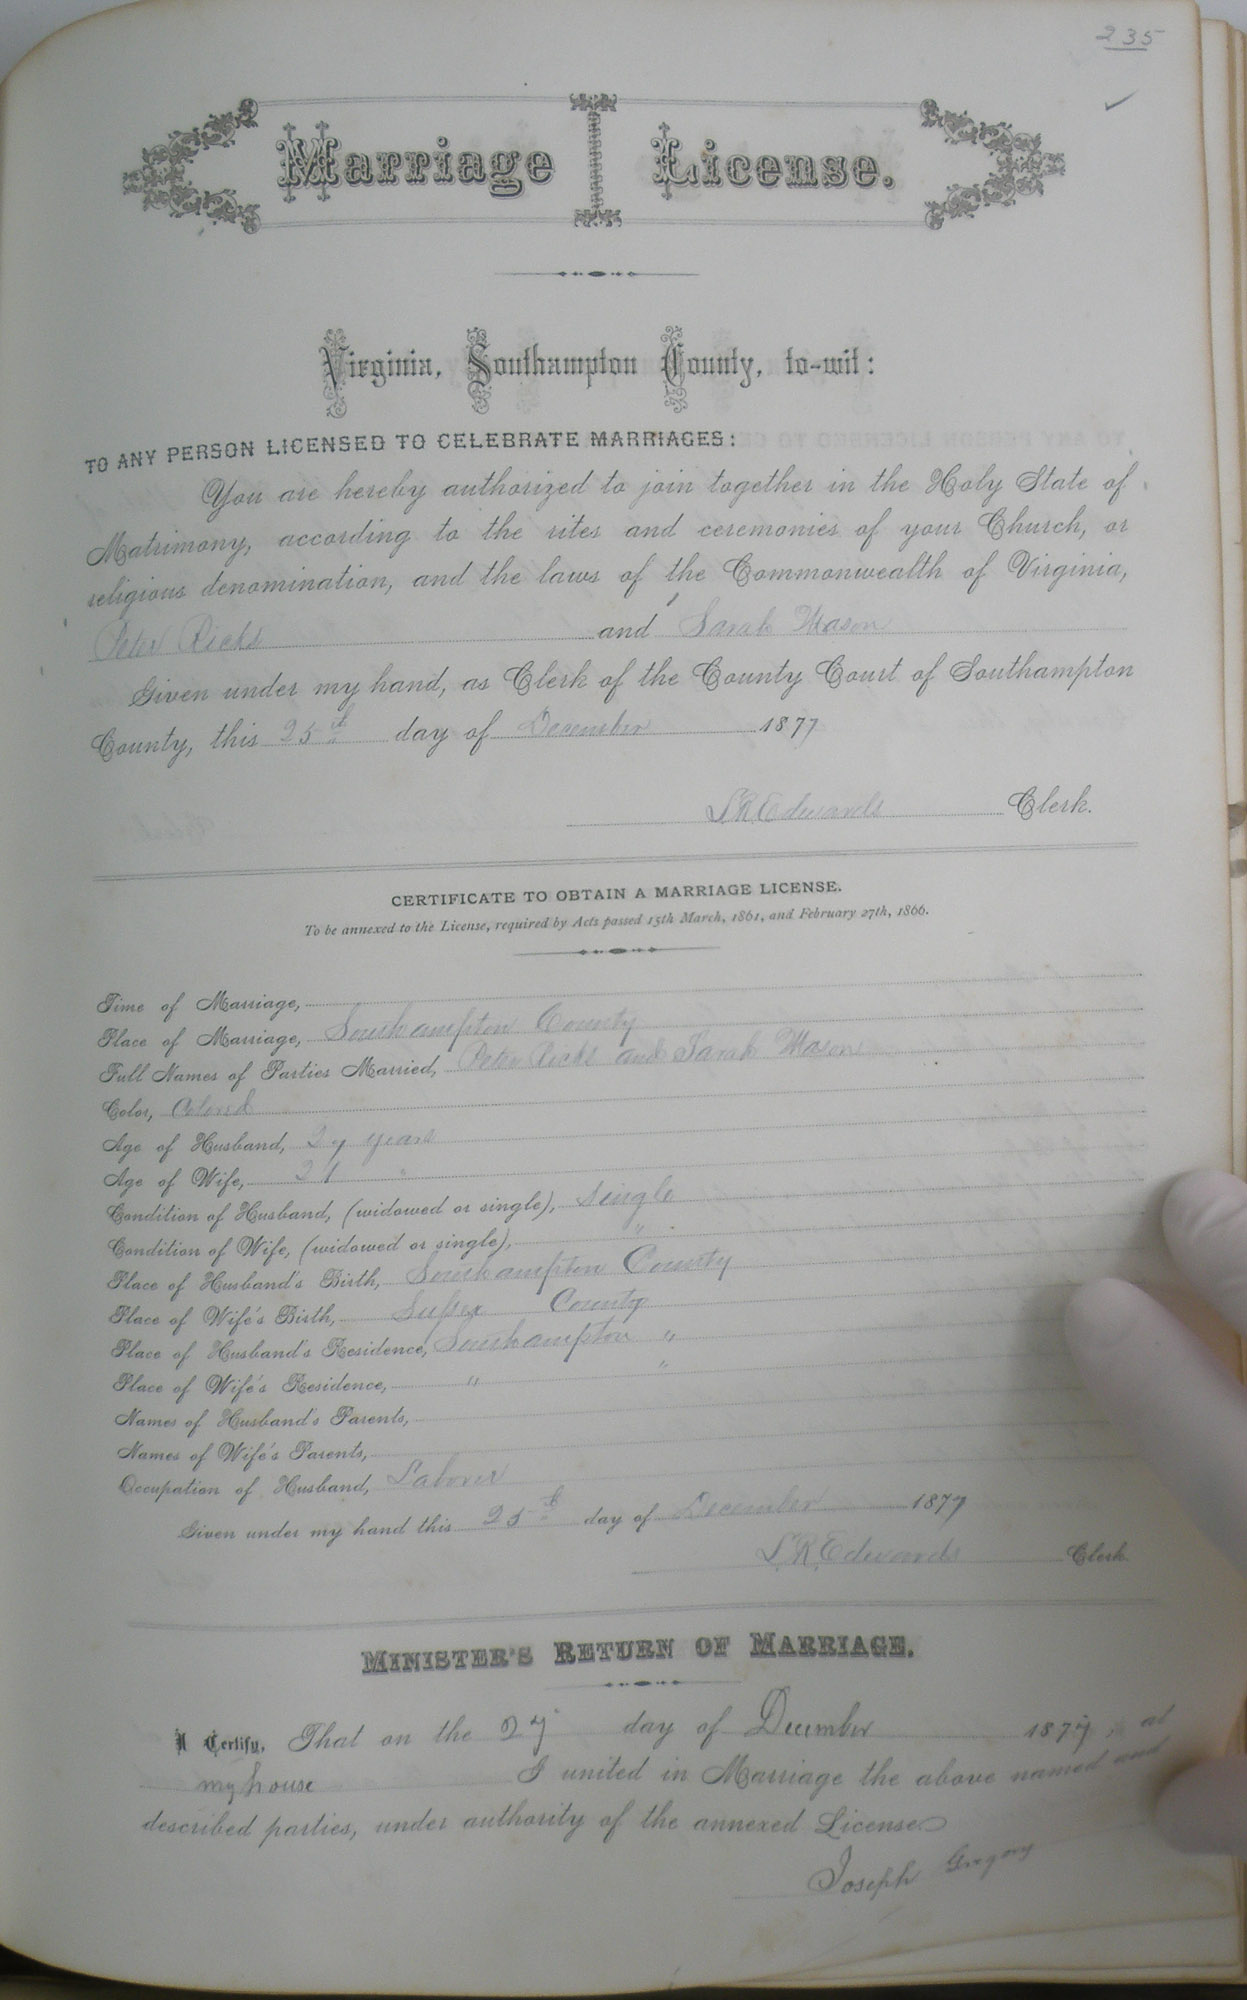 235
Marriage License.
Virginia, Southampton County, to-wit:
TO ANY PERSON LICENSED TO CELEBRATE MARRIAGES:
You are hereby authorized to join together in the Holy State of
Matrimony, according to the rites and ceremonies of your Church, or
religious denomination, and the laws of the Commonwealth of Virginia,
Peter Ricks and Sarah Mason
Given under my hand, as Clerk of the County Court of Southampton
County, this 25th day of December 1877
L.R. Edwards Clerk.
CERTIFICATE TO OBTAIN A MARRIAGE LICENSE.
To be annexed to the License, required by Acts passed 15th March, 1861, and February 27th, 1866.
Time of Marriage,
Place of Marriage, Southampton County
Full Names of Parties Married, Peter Ricks and Sarah Mason
Color, Colored
Age of Husband, 27 years
Age of Wife, 21 "
Condition of Husband, (widowed or single), Single
Condition of Wife, (widowed or single), "
Place of Husband's Birth, Southampton County
Place of Wife's Birth, Sussex County
Place of Husband's Residence, Southampton "
Place of Wife's Residence, " "
Names of Husband's Parents,
Names of Wife's Parents,
Occupation of Husband, Laborer
Given under my hand this 25th day of December 1877
L.R. Edwards Clerk
MINISTER'S RETURN OF MARRIAGE.
I Certify, That on the 27 day of December 1877, at
my house I united in Marriage the above named and
described parties, under authority of the annexed License
Joseph Gregory